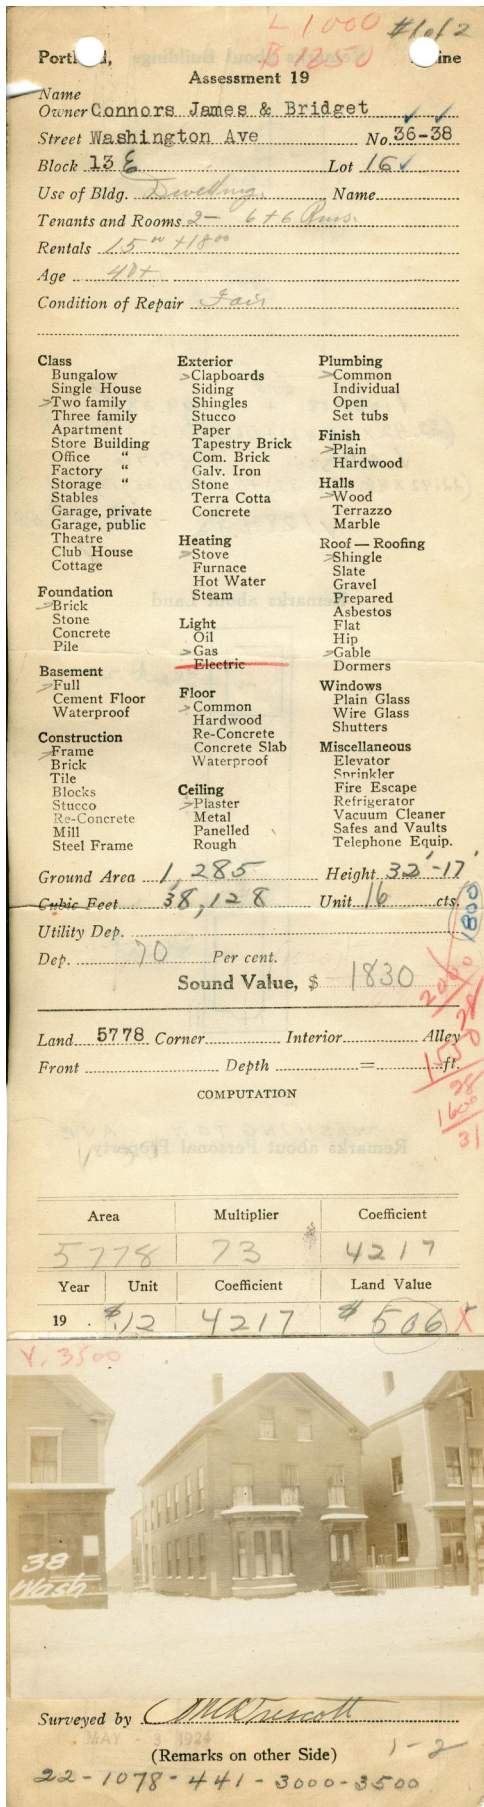 L 1000 #1 of 2
B 1250
Portland, Maine
Assessment 19
Name
Owner Connors James & Bridget
Street Washington Ave No. 36-38
Block 13 E Lot 16
Use of Bldg. Dwelling. Name
Tenants and Rooms 2- 6+6 Rms.
Rentals 15 00 + 18 00
Age 40+
Condition of Repair Fair
Class
Bungalow
Single House
>Two family
Three family
Apartment
Store Building
Office "
Factory "
Storage "
Stables
Garage, private
Garage, public
Theatre
Club House
Cottage
Foundation
>Brick
Stone
Concrete
Pile
Basement
>Full
Cement Floor
Waterproof
Construction
>Frame
Brick
Tile
Blocks
Stucco
Re-Concrete
Mill
Steel Frame
Exterior
>Clapboards
Siding
Shingles
Stucco
Paper
Tapestry Brick
Com. Brick
Galv. Iron
Stone
Terra Cotta
Concrete
Heating
>Stove
Furnace
Hot Water
Steam
Light
Oil
>Gas
Electric
Floor
>Common
Hardwood
Re-Concrete
Concrete Slab
Waterproof
Ceiling
>Plaster
Metal
Panelled
Rough
Plumbing
>Common
Individual
Open
Set tubs
Finish
>Plain
Hardwood
Halls
>Wood
Terrazzo
Marble
Roof — Roofing
>Shingle
Slate
Gravel
Prepared
Asbestos
Flat
Hip
>Gable
Dormers
Windows
Plain Glass
Wire Glass
Shutters
Miscellaneous
Elevator
Sprinkler
Fire Escape
Refrigerator
Vacuum Cleaner
Safes and Vaults
Telephone Equip.
Ground Area 1,285 Height 32'-17'
Cubic Feet 38,128 Unit 16 cts.
1800
Utility Dep.
Dep. 70 Per cent.
Sound Value, $ 1830
2000
28
Land 5778 Corner Interior Alley
1550
28
Front Depth = ft.
1600
31
COMPUTATION
Area Multiplier Coefficient
5778 73 4217
Year Unit Coefficient Land Value
19 . $.12 4217 $506 X
V. 3500
38
Wash
Surveyed by
MAY - 3 1924
(Remarks on other Side) 1-2
22-1078-441-3000-3500